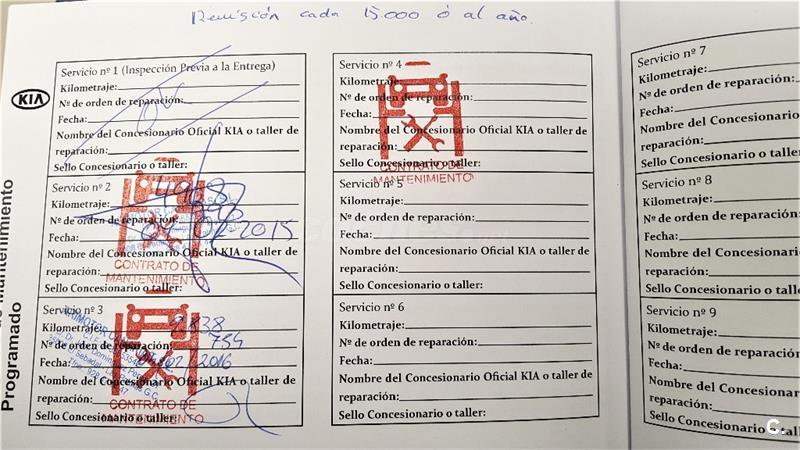 Revisión cada 15.000 ó al año.
KIA
de Mantenimiento
Programado
Servicio nº 1 (Inspección Previa a la Entrega)
Kilometraje:
Nº de orden de reparación:
Fecha:
Nombre del Concesionario Oficial KIA o taller de
reparación:
Sello Concesionario o taller:
Servicio nº 2
Kilometraje:
Nº de orden de reparación:
Fecha: 2015
Nombre del Concesionario Oficial KIA o taller de
reparación:
Sello Concesionario o taller:
CONTRATO DE
MANTENIMIENTO
Servicio nº 3
Kilometraje: 9.838
Nº de orden de reparación: 754
Fecha: 02 2016
Nombre del Concesionario Oficial KIA o taller de
reparación:
CONTRATO DE
MANTENIMIENTO
Sello Concesionario o taller:
Servicio nº 4
Kilometraje:
Nº de orden de reparación:
Fecha:
Nombre del Concesionario Oficial KIA o taller de
reparación:
Sello Concesionario o taller:
CONTRATO DE
MANTENIMIENTO
Servicio nº 5
Kilometraje:
Nº de orden de reparación:
Fecha:
Nombre del Concesionario Oficial KIA o taller de
reparación:
Sello Concesionario o taller:
Servicio nº 6
Kilometraje:
Nº de orden de reparación:
Fecha:
Nombre del Concesionario Oficial KIA o taller de
reparación:
Sello Concesionario o taller:
Servicio nº 7
Kilometraje:
Nº de orden de reparación:
Fecha:
Nombre del Concesionario
reparación:
Sello Concesionario o taller
Servicio nº 8
Kilometraje:
Nº de orden de reparación:
Fecha:
Nombre del Concesionario
reparación:
Sello Concesionario o tall
Servicio nº 9
Kilometraje:
Nº de orden de reparación:
Fecha:
Nombre del Concesionario
reparación:
Sello Concesionario o tall